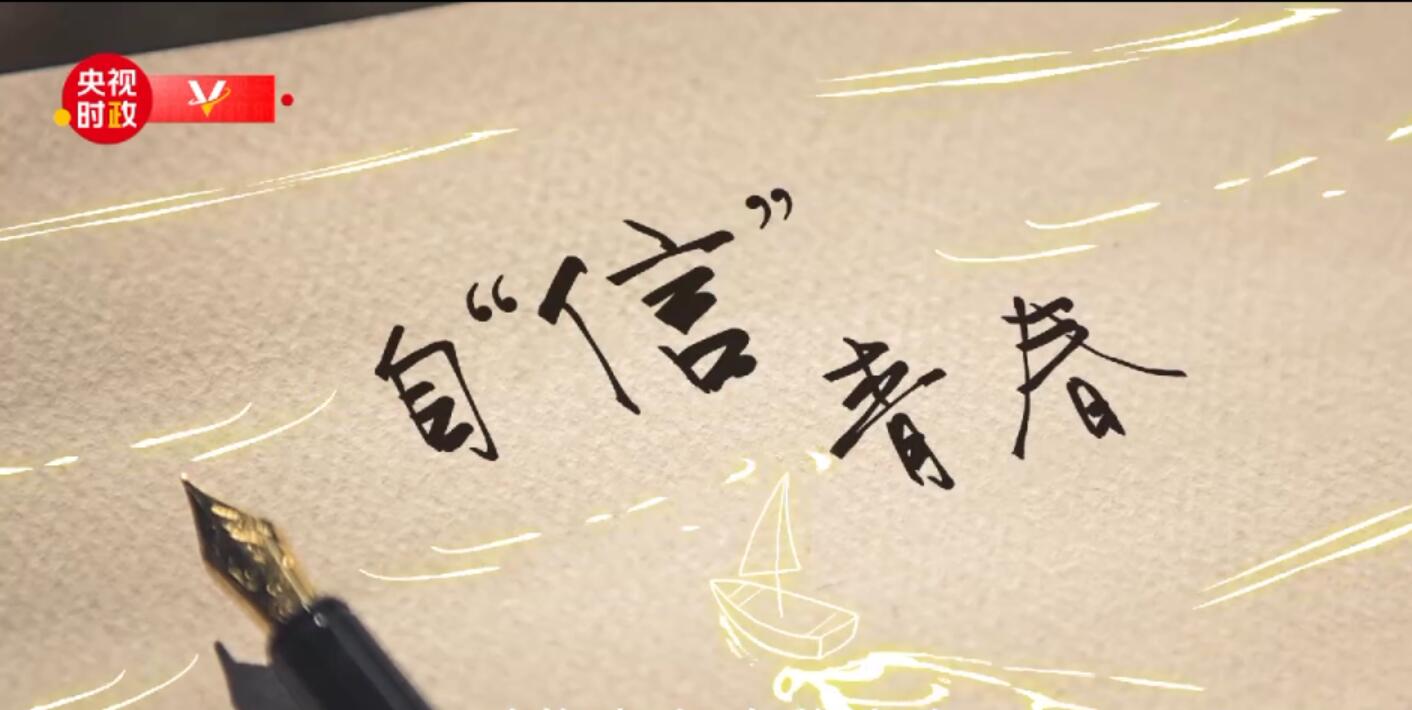 央视
时政
自“信”青春